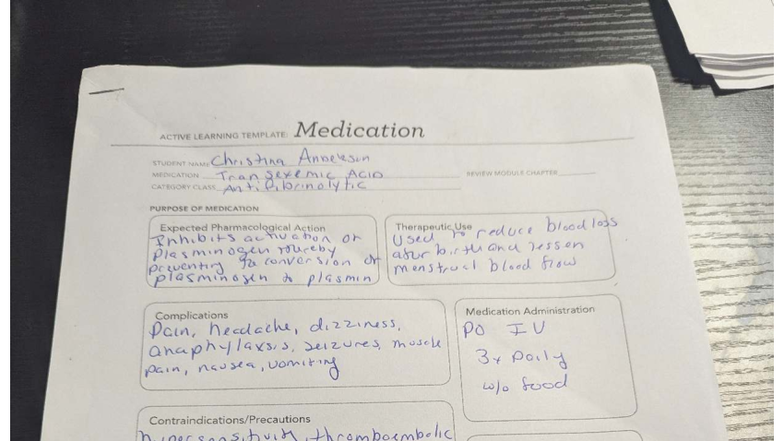 ACTIVE LEARNING TEMPLATE: Medication
STUDENT NAME Christina
MEDICATION Tranexemic Acid REVIEW MODULE CHAPTER
CATEGORY CLASS Antifibrinolytic
PURPOSE OF MEDICATION
Expected Pharmacological Action
Inhibits activation of
plasminogen thereby
preventing the conversion of
plasminogen to plasmin
Therapeutic Use
Used to reduce blood loss
after birth and lessen
menstrual blood flow
Complications
Pain, headache, dizziness,
anaphylaxsis, seizures, muscle
pain, nausea, vomiting
Medication Administration
PO IV
3x Daily
w/o food
Contraindications/Precautions
hypersensitivity, thromboembolic